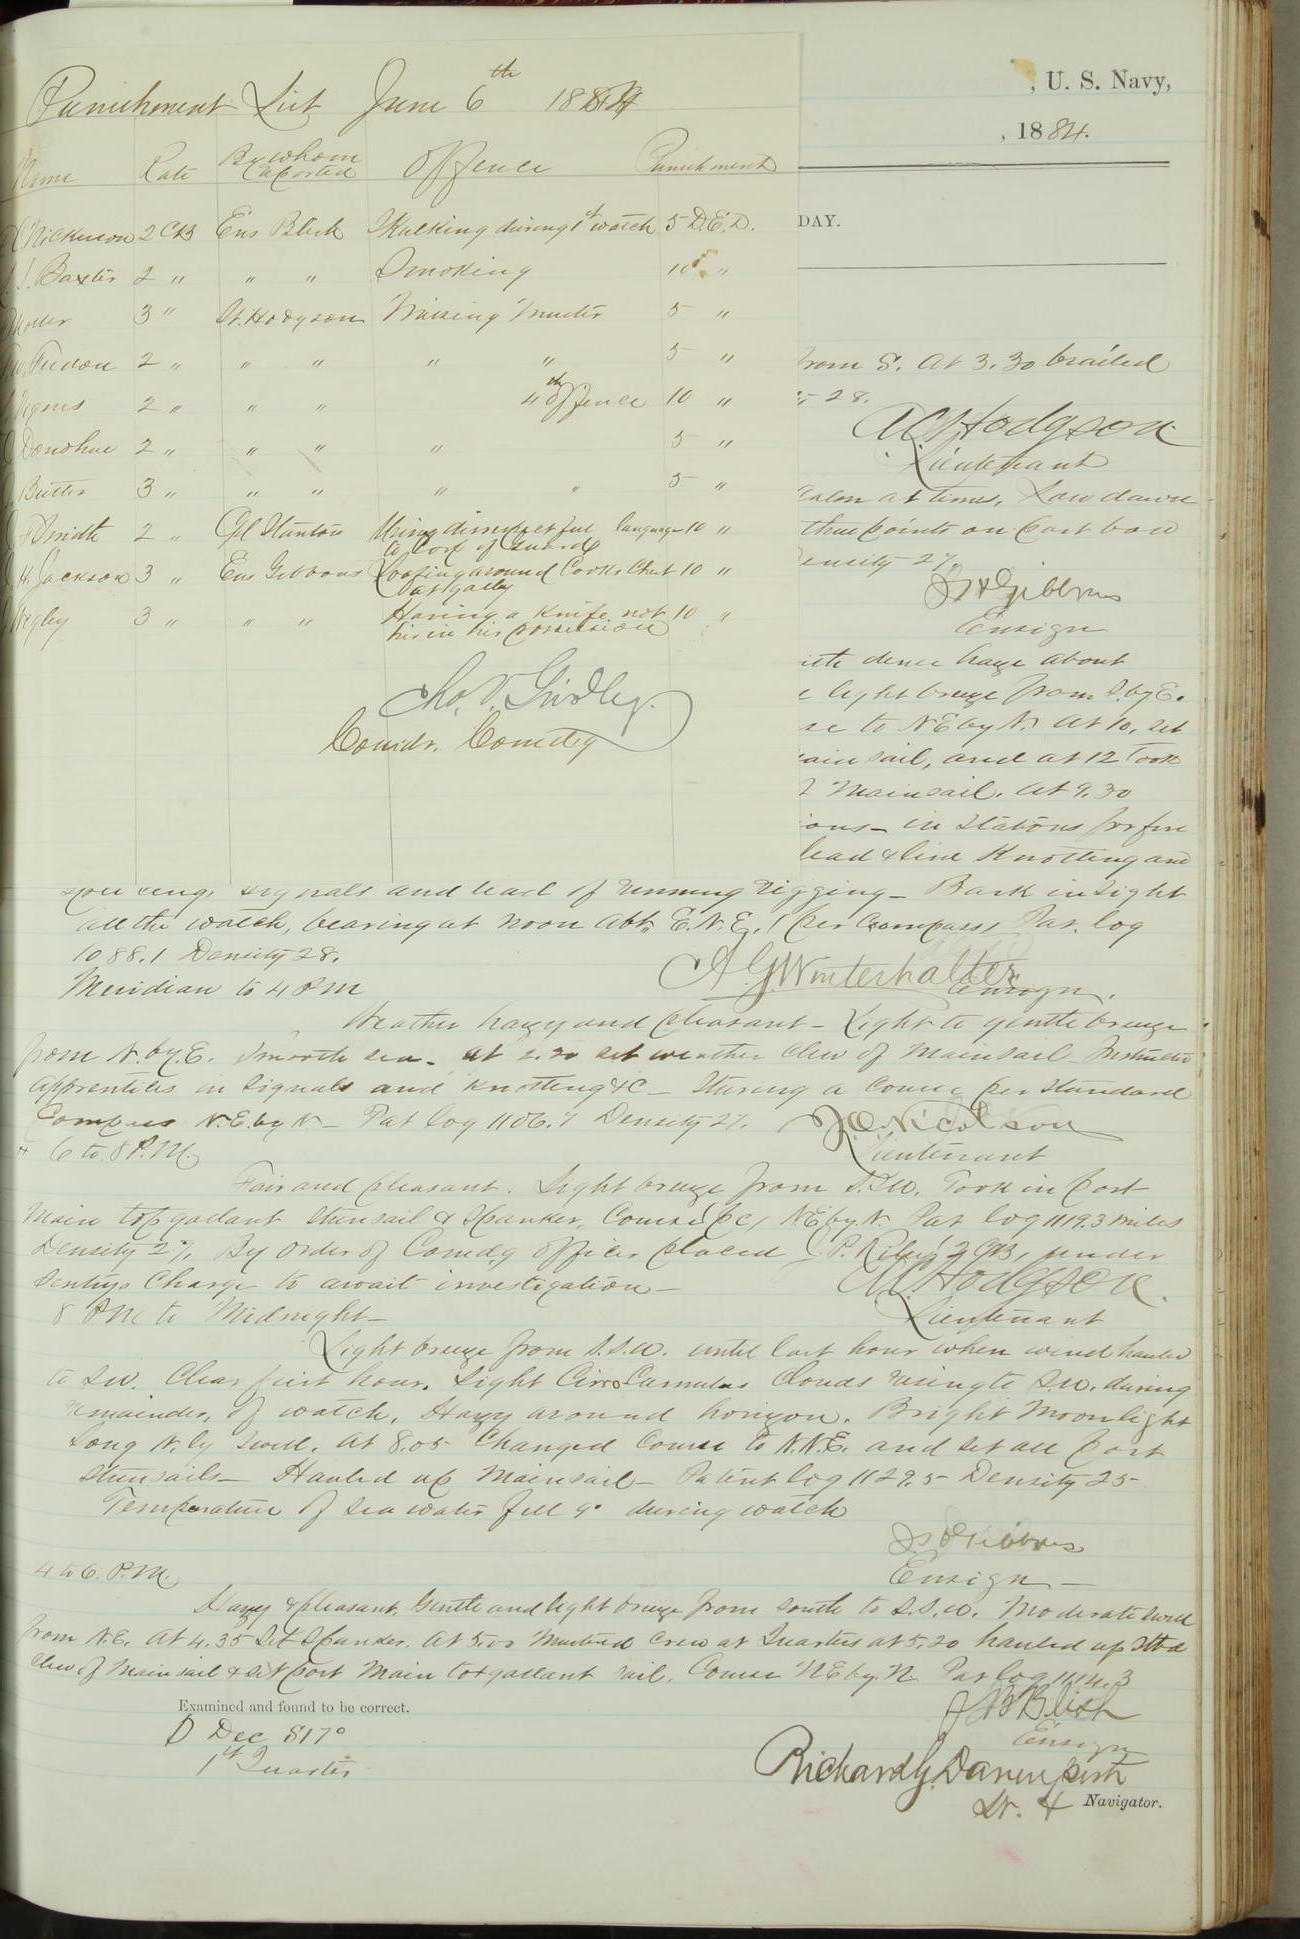 Punishment List June 6th 1884
Name Rate By whom Reported Offence Punishment
Nickerson 2 CB Ens Blish Skulking during 1st watch 5 D.E.D.
J. Baxter 2 " " " Smoking 10 "
3 " Lt. Hodgson Missing Muster 5 "
2 " " " " " 5 "
2 " " " 4th offence 10 "
Donohue 2 " " " " 5 "
Butler 3 " " " " " 5 "
Smith 2 " Cpl Stanton Using disrespectful language 10 "
to Corp of Guard
H. Jackson 3 " Ens Gibbons Loafing around Cooks Chest 10 "
at galley
3 " " " Having a knife not 10 "
his in his possession
Chas. V. Gridley.
Comdr. Comdg
, U. S. Navy,
, 1884.
DAY.
from S. At 3.30 brailed
28.
A.C. Hodgson
Lieutenant
calm at times. Saw dawn
three points on port bow
Density 27
J.H. Gibbons
Ensign
dense haze about
light breeze from S. by E.
to NE by N. At 10. set
main sail, and at 12 took
Mainsail. At 9.30
in stations for fire
lead & line Knotting and
signals and lead of running rigging – Bark in sight
all the watch, bearing at noon abt. E.N.E. (per compass) Pat. log
1088.1 Density 28.
A.G. Winterhalter
Ensign.
Meridian to 4 PM
Weather hazy and pleasant – Light to gentle breeze
from N. by E. Smooth sea. At 2.20 set weather clew of mainsail – Instructed
apprentices in signals and knotting &c – Steering a course per standard
Compass N.E. by N – Pat log 1106.7 Density 27.
J.O. Nicholson
Lieutenant
6 to 8 P.M.
Fair and pleasant. Light breeze from S.S.W. Took in port
main topgallant stunsail & Spanker, Course (pc) NE by N. Pat log 1119.3 miles
Density 27. By order of Comdg officer placed J.P. Riley 2 CB, under
Sentrys Charge to await investigation –
A.C. Hodgson.
Lieutenant
8 PM to Midnight –
Light breeze from S.S.W. until last hour when wind hauled
to SW. Clear first hour. Light Cirro Cumulus Clouds rising to S.W. during
remainder of watch, Hazy around horizon. Bright Moonlight
Long N.ly swell. At 8.05 Changed Course to N.N.E. and set all port
stunsails – Hauled up mainsail – Patent log 1129.5 Density 25
Temperature of sea water fell 9° during watch
J.H. Gibbons
Ensign –
4 to 6. P.M.
Hazy & pleasant. Gentle and light breeze from South to S.S.W. Moderate swell
from N.E. At 4.35 Set Spanker. At 5.00 Mustered crew at Quarters at 5.20 hauled up
clew of mainsail & set port Main topgallant sail. Course NE by N Pat log 1114.3
J.B. Blish
Ensign
Examined and found to be correct.
D Dec S17°
1st Quarter
Richard G. Davenport
Lt. & Navigator.